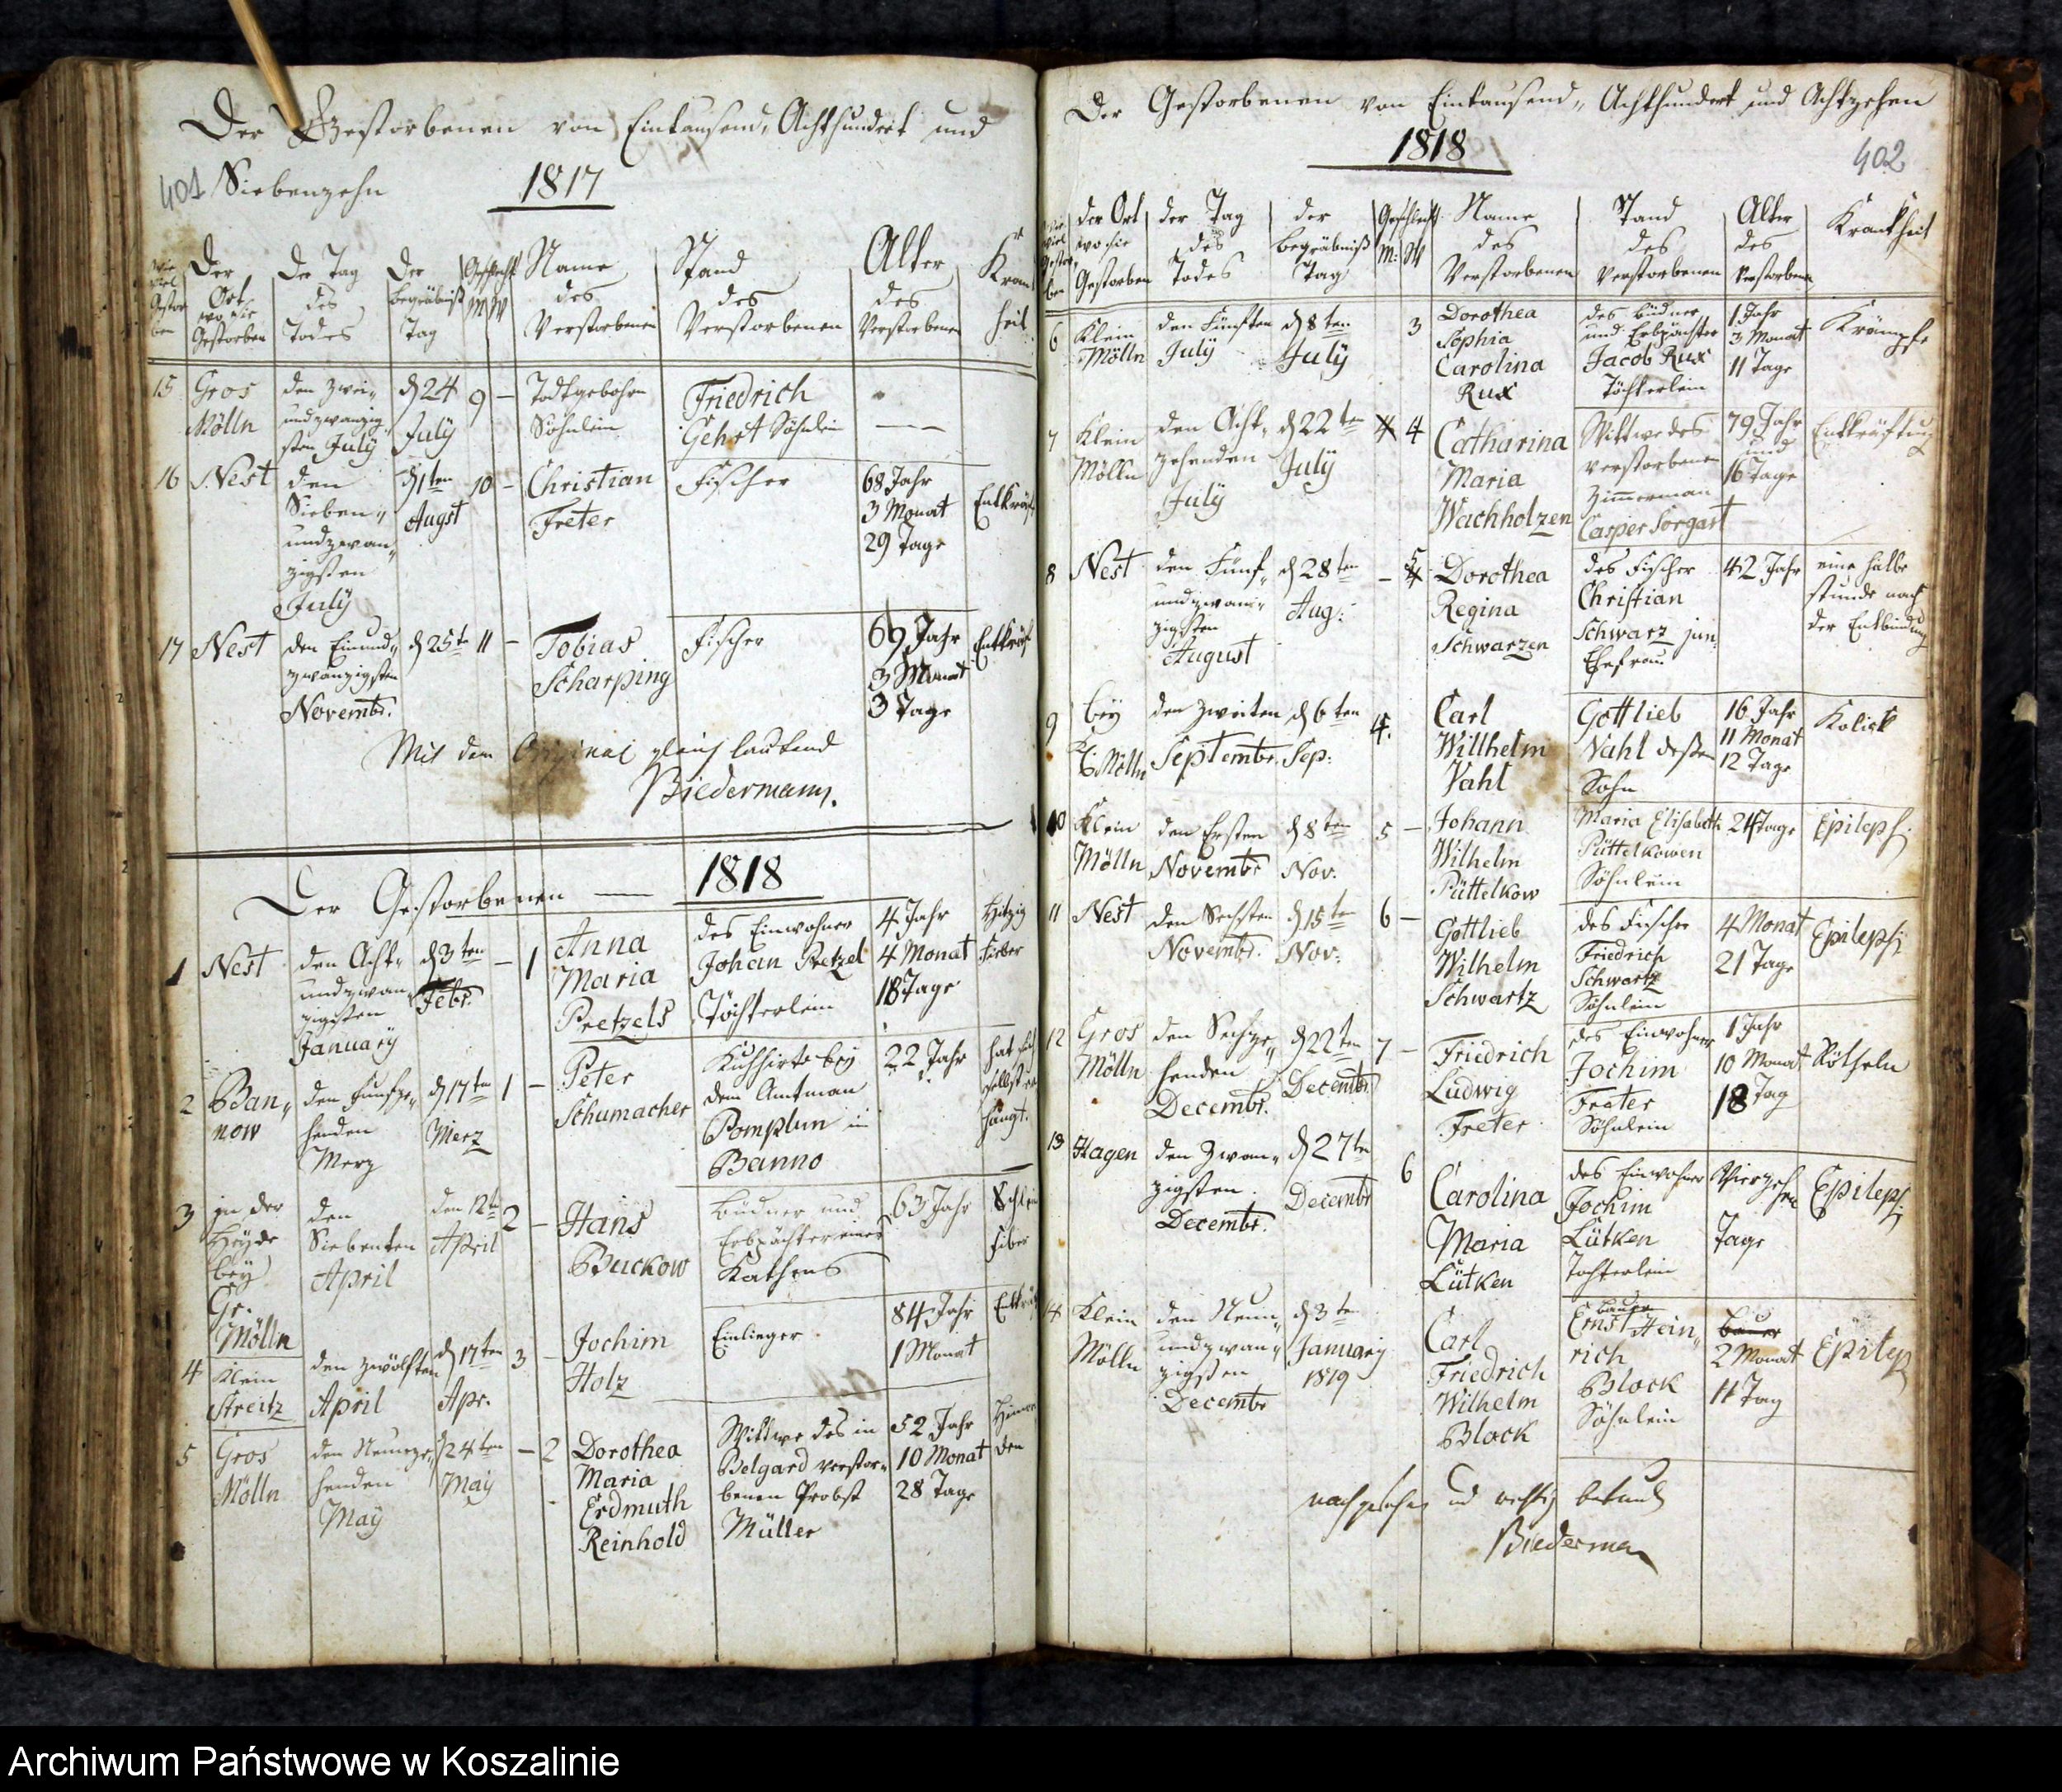 Der Gestorbenen von Eintausend, Achthundert und
401 Siebenzehn 1817
Wie viel Gestorben
Der Ort wo sie Gestorben
Der Tag des Todes
Der begräbniß Tag
Geschlecht M W
Name des Verstorbenen
Stand des Verstorbenen
Alter des Verstorbenen
Krankheit
15 Gros Mölln
den zwei-
und zwanzig-
sten July
d 24 July
9 –
Todtgebohren
Söhnlein
Friedrich
Gehrt Söhnlein
– –
16 Nest
den
Sieben-
und zwan-
zigsten
July
d 1ten
Augst
10 –
Christian
Freter
Fischer
68 Jahr
3 Monat
29 Tage
Entkräf
17 Nest
den Einund-
zwanzigsten
Novembr.
d 25te
11 –
Tobias
Scharping
Fischer
69 Jahr
3 Monat
3 Tage
Entkräf
Mit dem Original gleich lautend
Biedermann.
Der Gestorbenen — 1818
1 Nest
den Acht-
und zwan-
zigsten
January
d 3ten
Febr.
– 1
Anna
Maria
Pretzels
des Einwohner
Johan Pretzel
Töchterlein
4 Jahr
4 Monat
18 Tage
Hitzig
Fieber
2 Ban-
now
den Funfze-
henden
Merz
d 17ten
Merz
1 –
Peter
Schumacher
Kuhhirte bey
dem Amtman
Pomplun in
Banno
22 Jahr
hat sich
selbst er
hängt.
3 in der
Heyde
bey
Gr.
Mölln
den
Siebenten
April
den 12te
April
2 –
Hans
Buckow
Büdner und
Erbpächter eines
Kathens
63 Jahr
Schlei
Fiber
4 Klein
Streitz
den zwölften
April
d 17ten
Apr.
3 –
Jochim
Holz
Einlieger
84 Jahr
1 Monat
Entkräf
5 Gros
Mölln
den Neunze-
henden
May
d 24ten
May
– 2
Dorothea
Maria
Erdmuth
Reinhold
Wittwe des in
Belgard verstor-
benen Probst
Müller
52 Jahr
10 Monat
28 Tage
Der Gestorbenen von Eintausend, Achthundert und Achtzehen
1818
402
Wie viel Gestorben
der Ort wo sie Gestorben
der Tag des Todes
der begräbniß Tag
Geschlecht M: W
Name des Verstorbenen
Stand des Verstorbenen
Alter des Verstorbenen
Krankheit
6 Klein
Mölln
den Fünften
July
d 8ten
July
3
Dorothea
Sophia
Carolina
Rux
des Büdner
und Erbpächter
Jacob Rux
Töchterlein
1 Jahr
3 Monat
11 Tage
Krämpfe
7 Klein
Mölln
den Acht-
zehenden
July
d 22ten
July
4
Catharina
Maria
Wachholzen
Wittwe des
verstorbenen
Zimmerman
Casper Sorgart
79 Jahr
und
16 Tage
Entkräftung
8 Nest
den Fünf-
und zwan-
zigsten
August
d 28ten
Aug:
– 5
Dorothea
Regina
Schwarzen
des Fischer
Christian
Schwarz jun:
Ehefrau
42 Jahr
eine halbe
stunde nach
der Entbindung
9 bey
Mölln
den zweiten
Septembr.
d 6ten
Sep:
4.
Carl
Willhelm
Vahl
Gottlieb
Vahl deßen
Sohn
16 Jahr
11 Monat
12 Tage
Kolick
10 Klein
Mölln
den Ersten
Novembr
d 8ten
Nov.
5 –
Johann
Wilhelm
Püttelkow
Maria Elisabeth
Püttelkowen
Söhnlein
24 Tage
Epilepsi
11 Nest
den Sechsten
Novembr.
d 15te
Nov:
6 –
Gottlieb
Wilhelm
Schwartz
des Fischer
Friedrich
Schwartz
Söhnlein
4 Monat
21 Tage
Epilepsi
12 Gros
Mölln
den Sechze-
henden
Decembr.
d 22ten
Decembr
7 –
Friedrich
Ludwig
Freter
des Einwohner
Jochim
Freter
Söhnlein
1 Jahr
10 Monat
18 Tag
Rötheln
13 Hagen
den Zwan-
zigsten
Decembr.
d 27te
Decembr
6
Carolina
Maria
Lütken
des Einwohner
Jochim
Lütken
Tochterlein
Vierzeh
hen
Tage
Epileps:
14 Klein
Mölln
den Neun-
und zwan-
zigsten
Decembr
d 3te
January
1819
Carl
Friedrich
Wilhelm
Block
bauer
Ernst Hein-
rich
Block
Söhnlein
bauer
2 Monat
11 Tag
Epilep
nachgesehen und richtig befund
Biederman
Archiwum Państwowe w Koszalinie